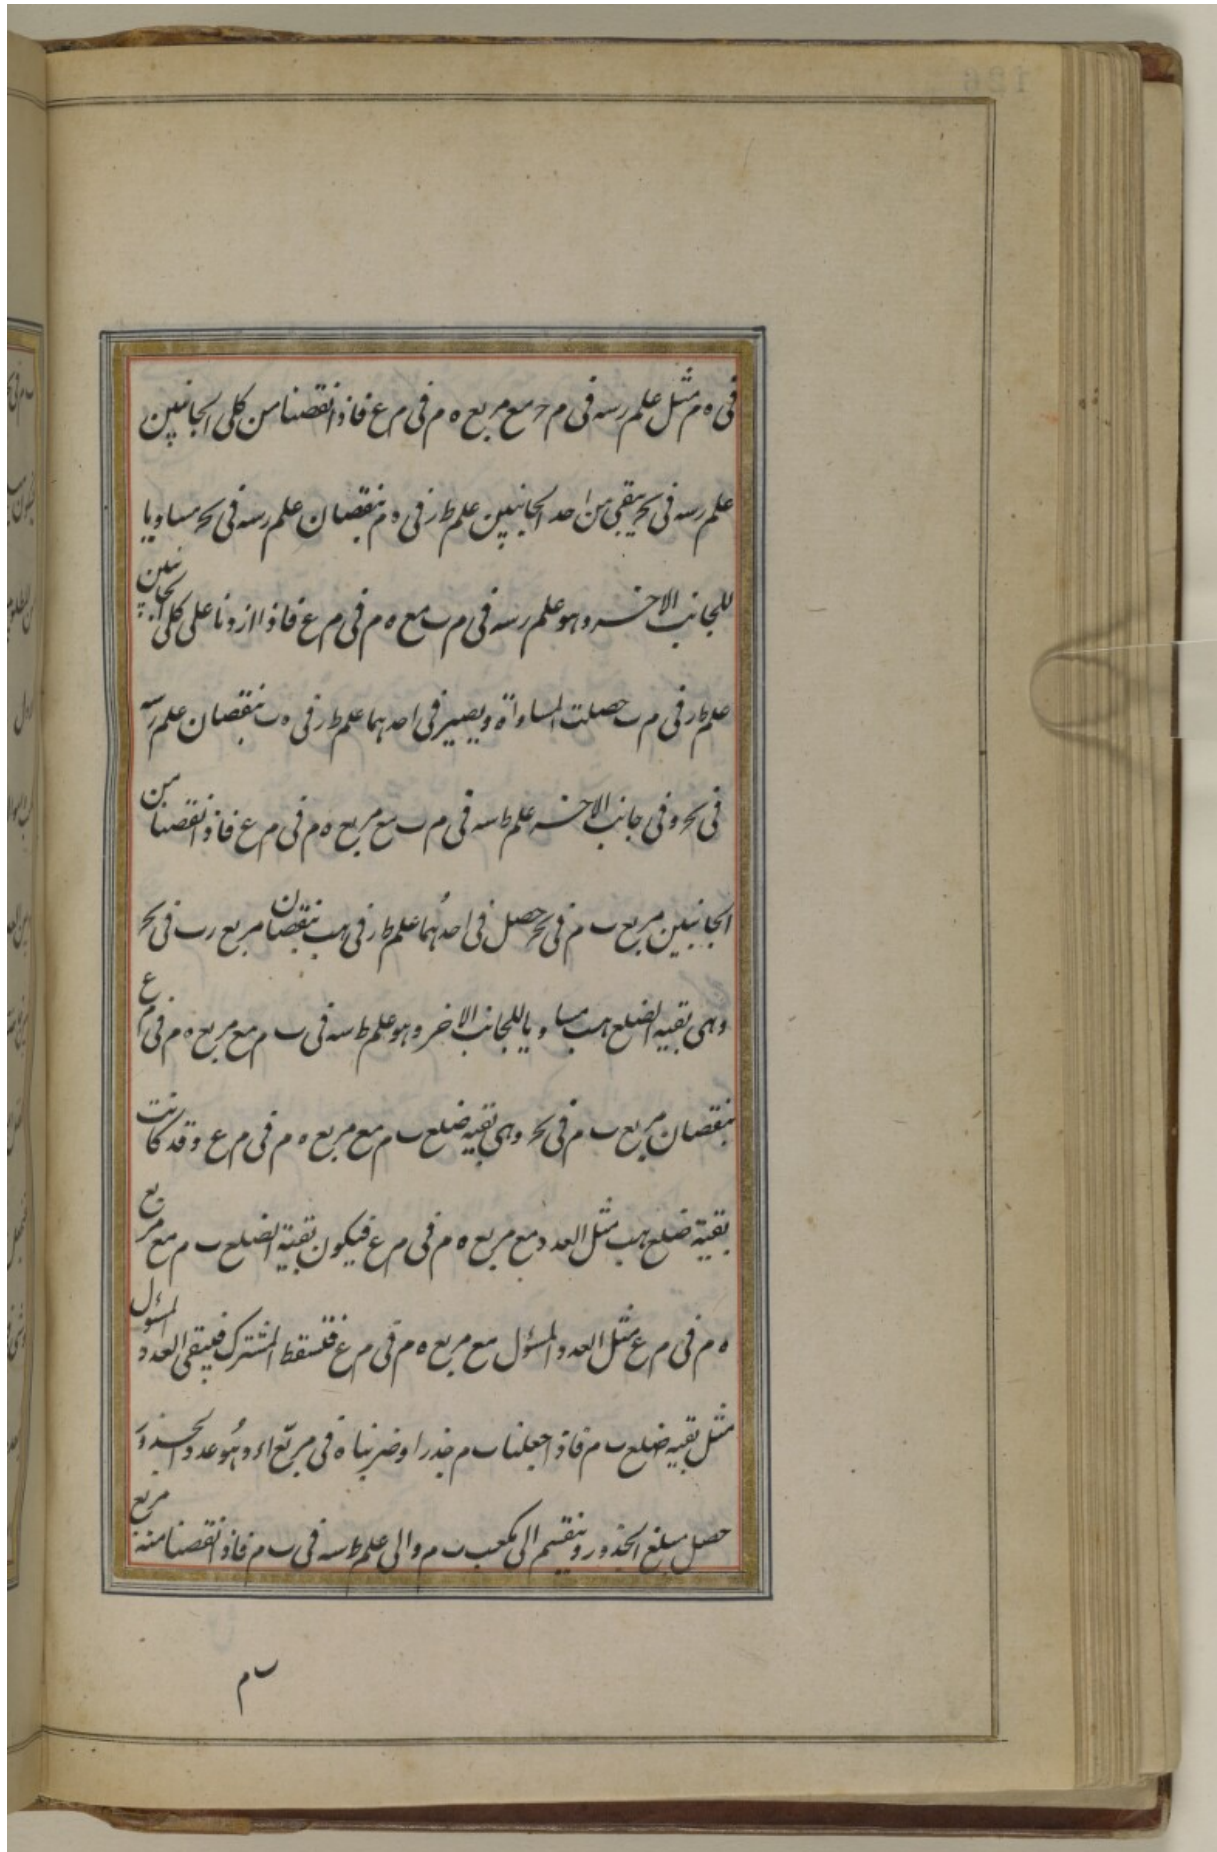 فى ه م مثل علم رسه فى م ح مع مربع ه م فى م ع فاذا نقصنا من كلى الجانبين
علم رسه فى بح يبقى من احد الجانبين علم ط ر فى ه م بنقصان علم رسه فى بح مساويا
للجانب الاخر وهو علم رسه فى م ب مع ه م فى م ع فاذا ازدنا على كلى الجانبين
علم ط ر فى م ب حصلت المساواة ويصير فى احدهما علم ط ر فى ه ب بنقصان علم رسه
فى بح وفى جانب الاخر علم ط سه فى م ب مع مربع ه م فى م ع فاذا نقصنا من
الجانبين مربع ب م فى بح حصل فى احدهما علم ط ر فى هب بنقصان مربع رب فى بح
وهى بقيه الضلع هب مساويا للجانب الاخر وهو علم ط سه فى ب م مع مربع ه م فى م ع
بنقصان مربع ب م فى بح وهى بقيه ضلع ب م مع مربع ه م فى م ع وقد كانت
بقية ضلع هب مثل العدد مع مربع ه م فى م ع فيكون بقية الضلع ب م مع مربع
ه م فى م ع مثل العدد المسؤل مع مربع ه م فى م ع فتسقط المشترك فيبقى العدد المسؤل
مثل بقيه ضلع ب م فاذا جعلنا ب م جذرا وضربناه فى مربع اء وهو عدد الجذور
حصل مبلغ الجذور وينقسم الى مكعب ب م والى علم ط سه فى ب م فاذا نقصنا منه مربع
ب م